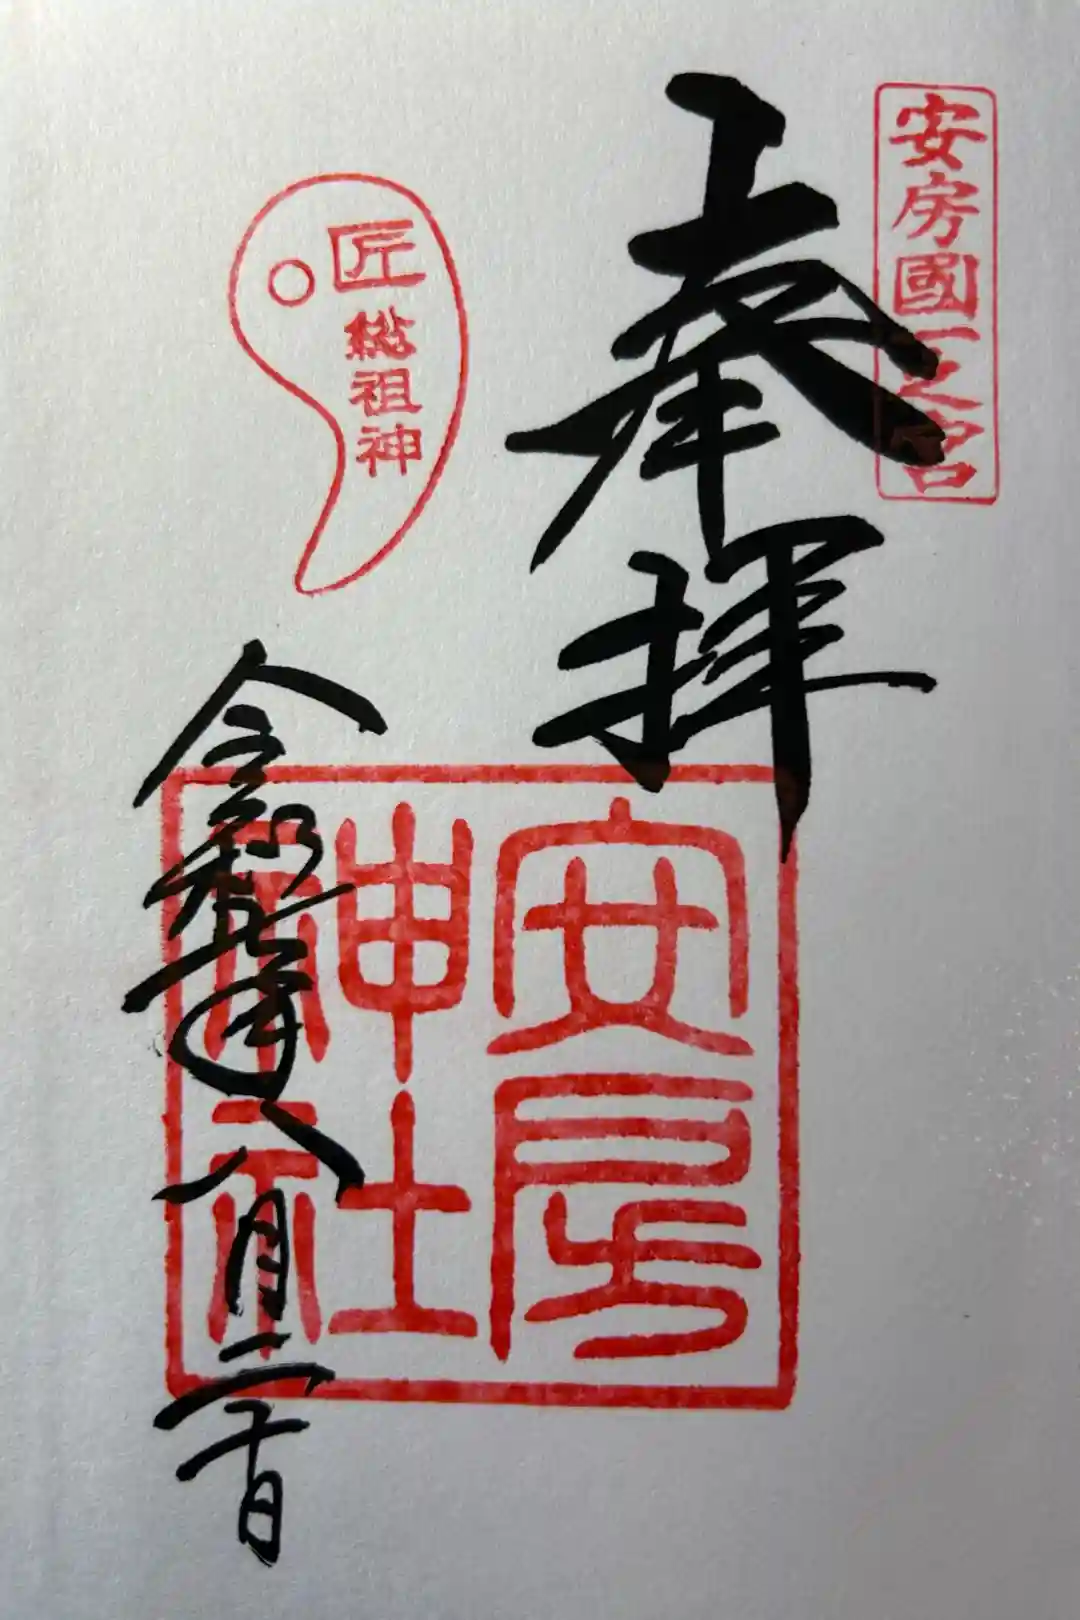 安房國一之宮
奉拝
安房
神社
匠総祖神
令和 年八月二十日